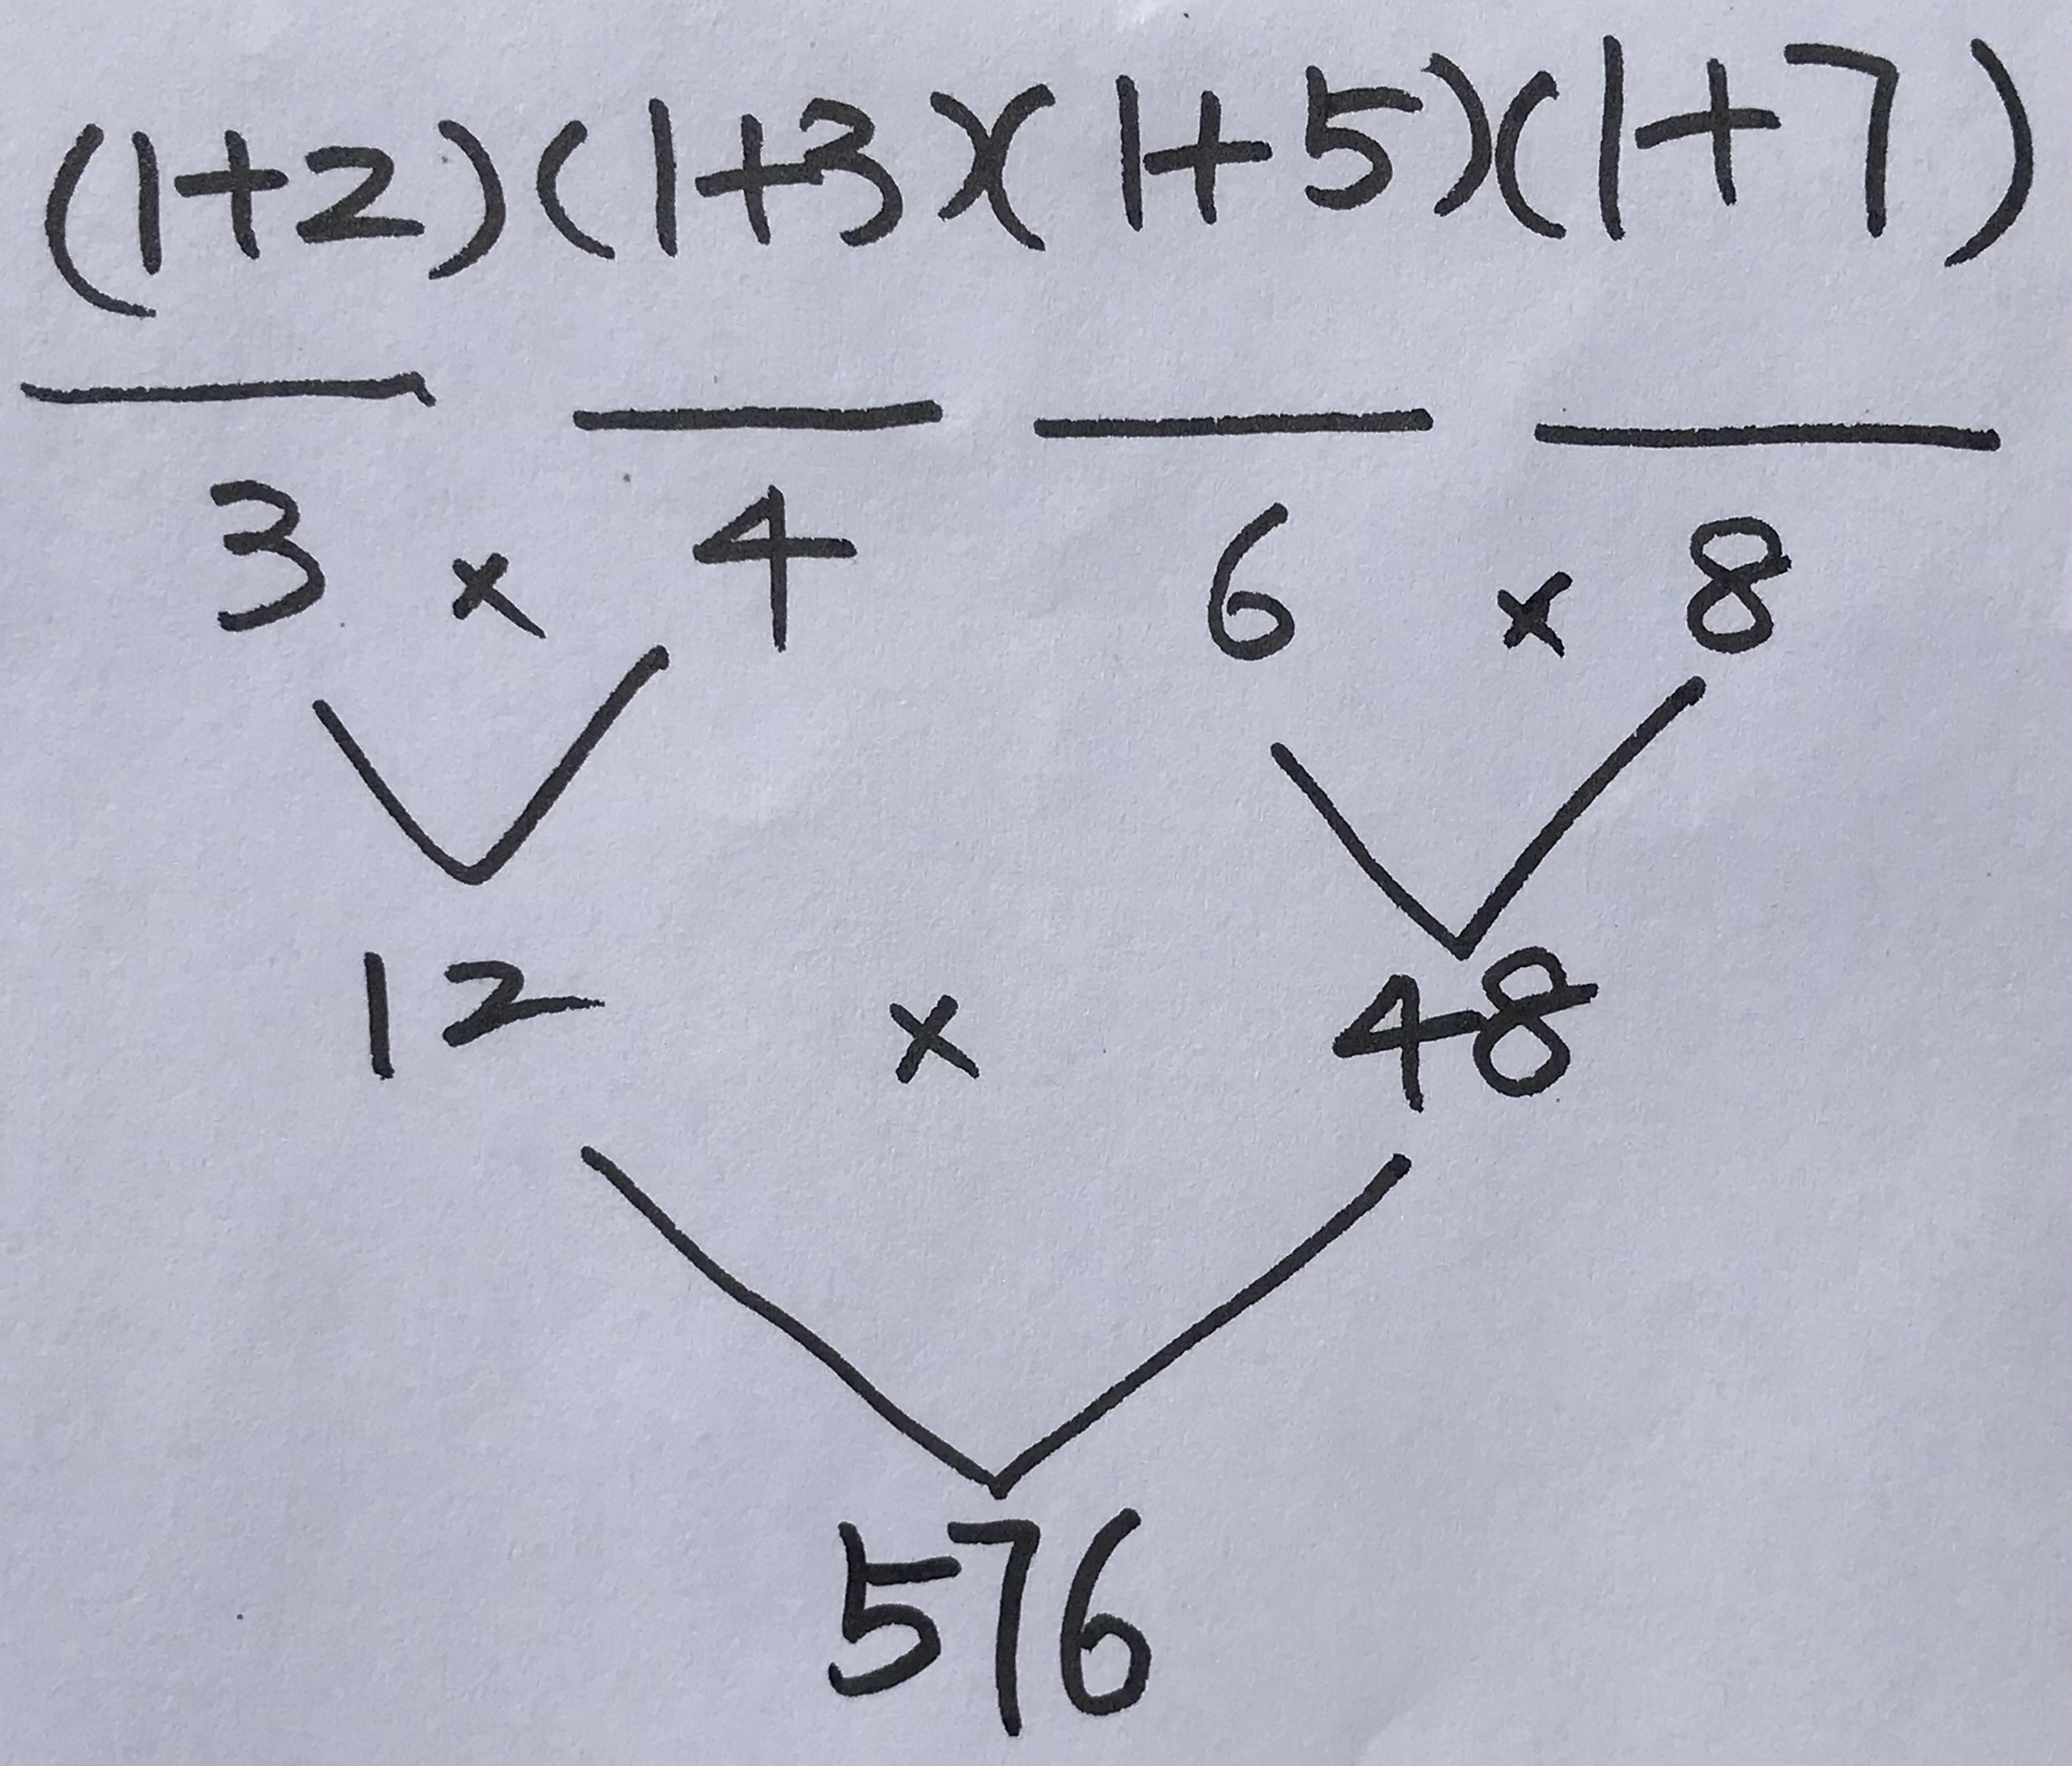 (1+2)(1+3)(1+5)(1+7)
3 × 4 6 × 8
12 × 48
576